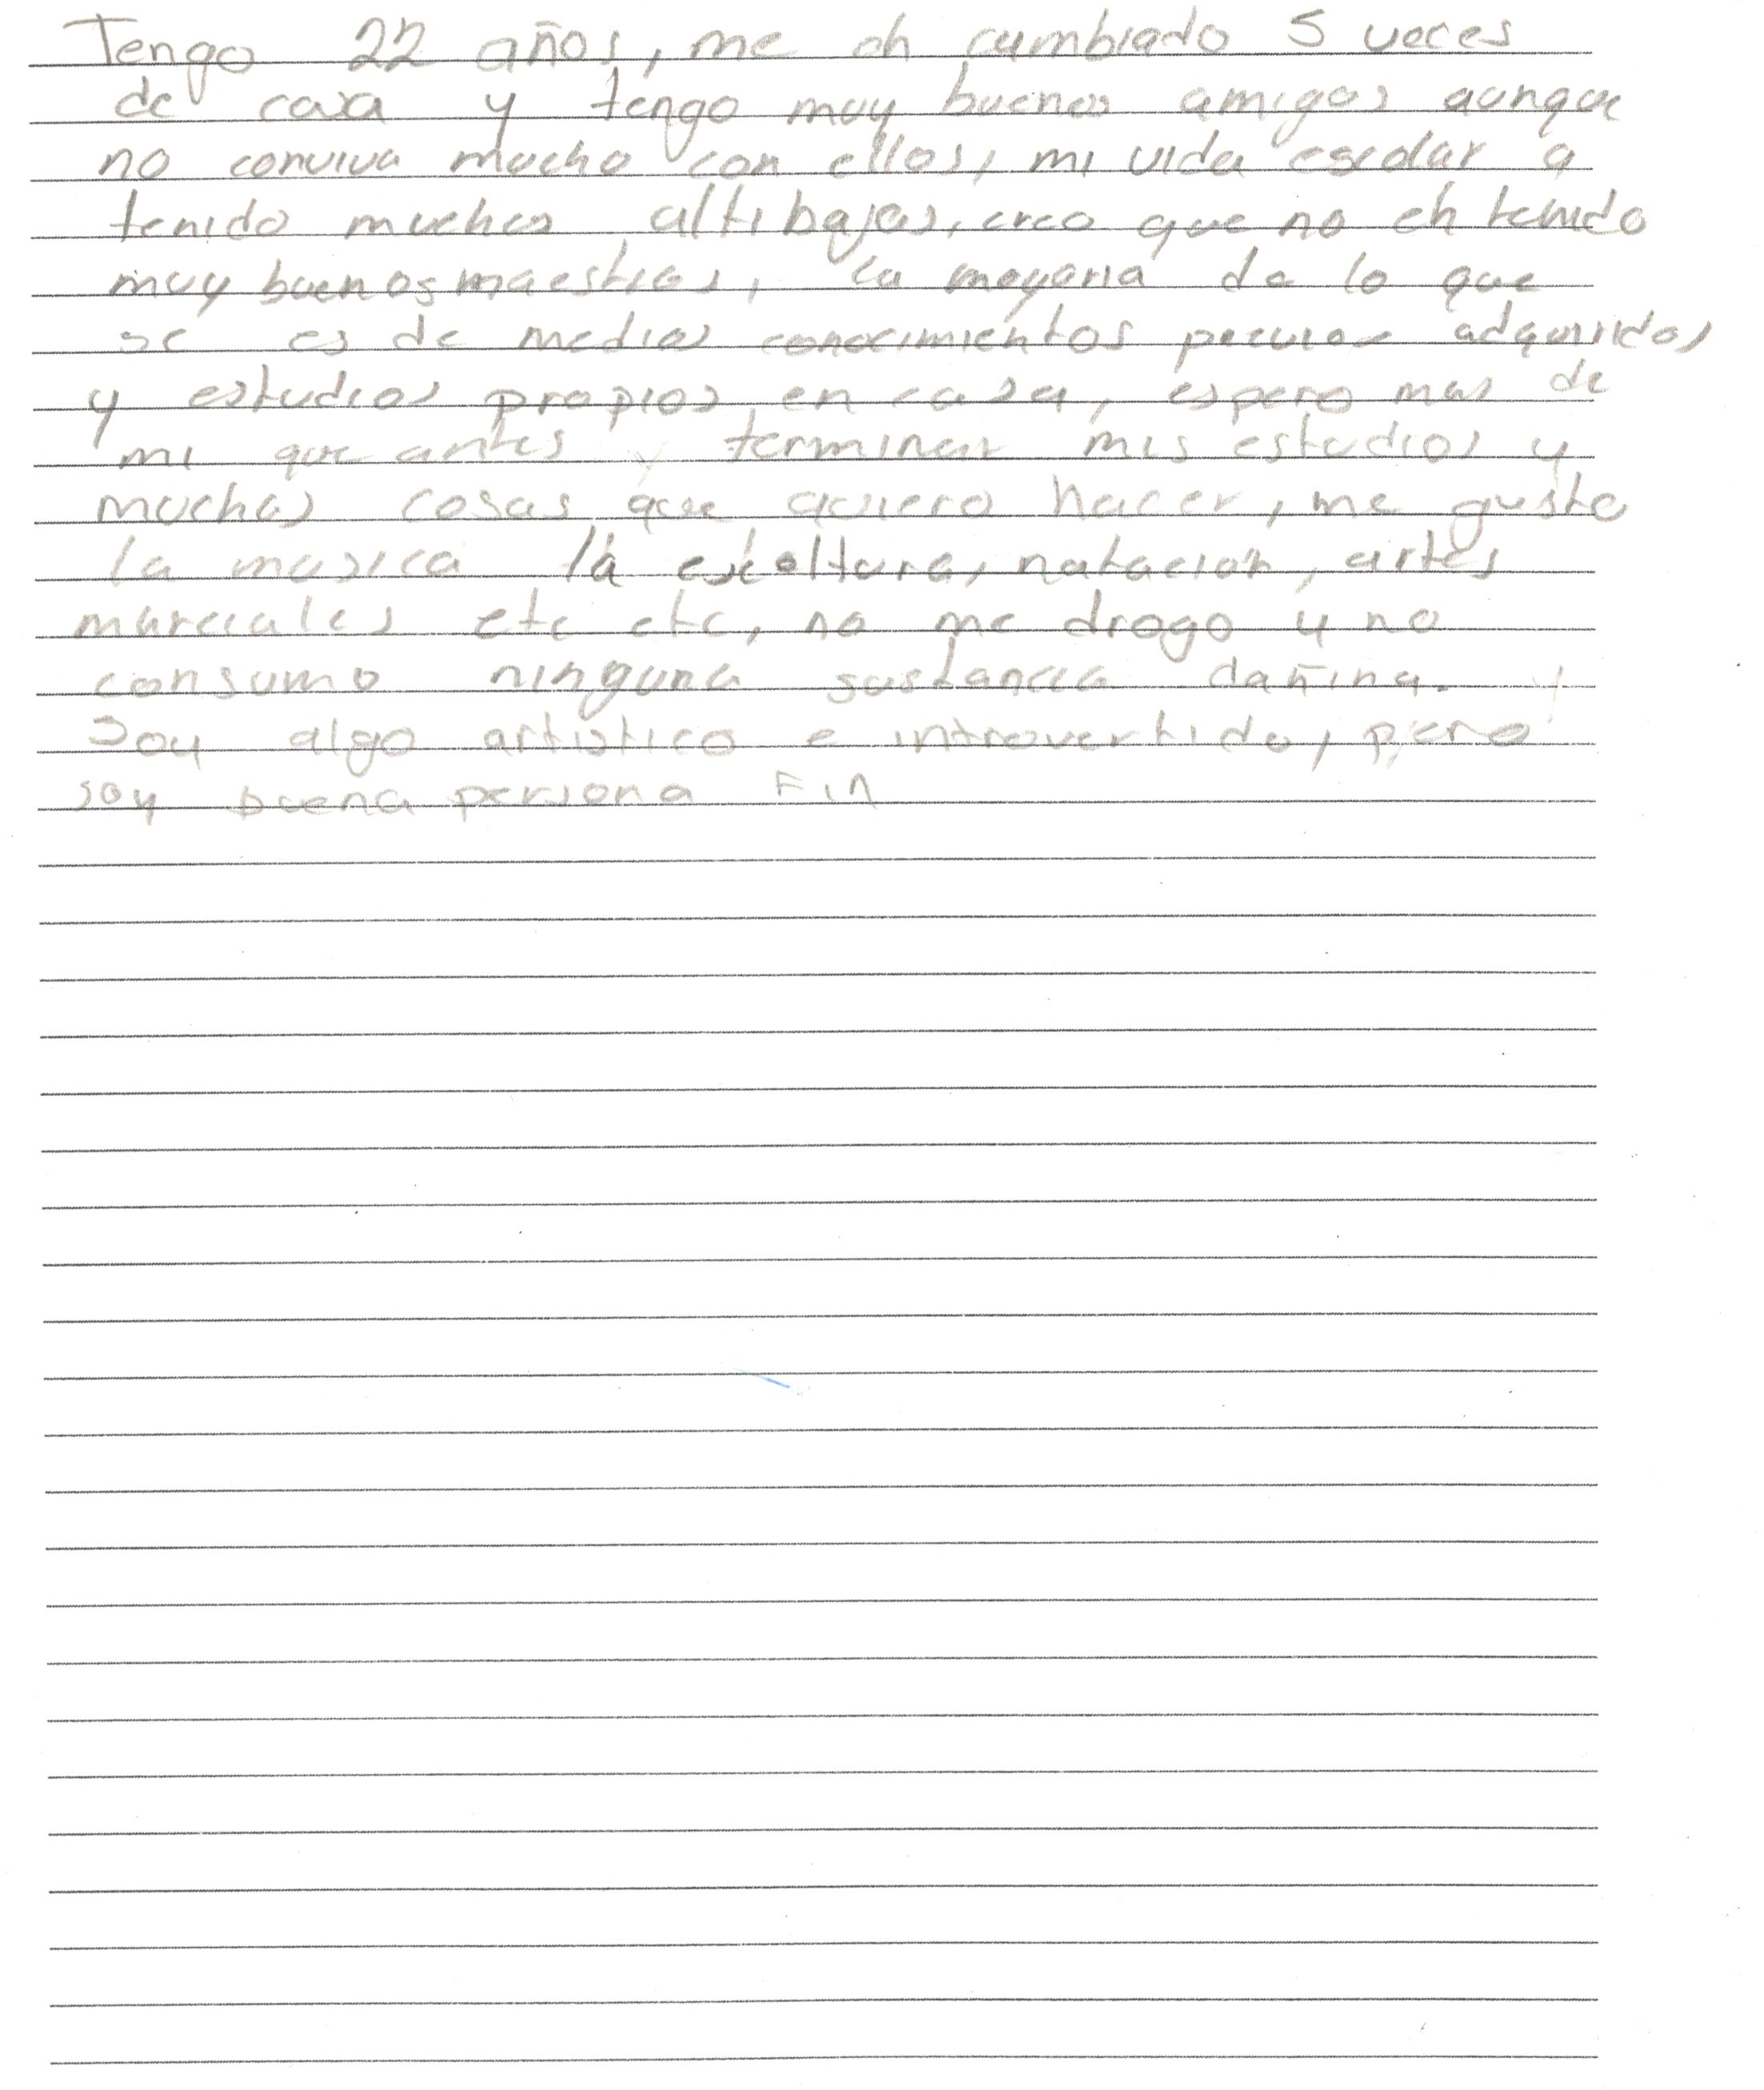 Tengo 22 años, me eh cambiado 5 veces
de casa y tengo muy buenos amigos aunque
no conviva mucho con ellos, mi vida escolar a
tenido muchos altibajos, creo que no eh tenido
muy buenos maestros, la mayoria de lo que
se es de medios conocimientos adquiridos
y estudios propios en casa, espero mas de
mi que antes y terminar mis estudios y
muchas cosas que quiero hacer, me gusta
la musica la escultura, natacion, artes
marciales etc etc, no me drogo y no
consumo ninguna sustancia dañina. y
Soy algo artistico e introvertido, pero
soy buena persona Fin